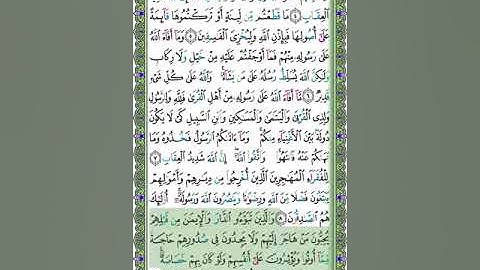 ٱلْعِقَابِ ٤ مَا قَطَعْتُم مِّن لِّينَةٍ أَوْ تَرَكْتُمُوهَا قَآئِمَةً
عَلَىٰٓ أُصُولِهَا فَبِإِذْنِ ٱللَّهِ وَلِيُخْزِىَ ٱلْفَٰسِقِينَ ٥ وَمَآ أَفَآءَ ٱللَّهُ
عَلَىٰ رَسُولِهِۦ مِنْهُمْ فَمَآ أَوْجَفْتُمْ عَلَيْهِ مِنْ خَيْلٍ وَلَا رِكَابٍ
وَلَٰكِنَّ ٱللَّهَ يُسَلِّطُ رُسُلَهُۥ عَلَىٰ مَن يَشَآءُ ۚ وَٱللَّهُ عَلَىٰ كُلِّ شَىْءٍ
قَدِيرٌ ٦ مَّآ أَفَآءَ ٱللَّهُ عَلَىٰ رَسُولِهِۦ مِنْ أَهْلِ ٱلْقُرَىٰ فَلِلَّهِ وَلِلرَّسُولِ
وَلِذِى ٱلْقُرْبَىٰ وَٱلْيَتَٰمَىٰ وَٱلْمَسَٰكِينِ وَٱبْنِ ٱلسَّبِيلِ كَىْ لَا يَكُونَ
دُولَةًۢ بَيْنَ ٱلْأَغْنِيَآءِ مِنكُمْ ۚ وَمَآ ءَاتَىٰكُمُ ٱلرَّسُولُ فَخُذُوهُ وَمَا
نَهَىٰكُمْ عَنْهُ فَٱنتَهُوا۟ ۚ وَٱتَّقُوا۟ ٱللَّهَ ۖ إِنَّ ٱللَّهَ شَدِيدُ ٱلْعِقَابِ ٧
لِلْفُقَرَآءِ ٱلْمُهَٰجِرِينَ ٱلَّذِينَ أُخْرِجُوا۟ مِن دِيَٰرِهِمْ وَأَمْوَٰلِهِمْ
يَبْتَغُونَ فَضْلًا مِّنَ ٱللَّهِ وَرِضْوَٰنًا وَيَنصُرُونَ ٱللَّهَ وَرَسُولَهُۥٓ ۚ أُو۟لَٰٓئِكَ
هُمُ ٱلصَّٰدِقُونَ ٨ وَٱلَّذِينَ تَبَوَّءُو ٱلدَّارَ وَٱلْإِيمَٰنَ مِن قَبْلِهِمْ
يُحِبُّونَ مَنْ هَاجَرَ إِلَيْهِمْ وَلَا يَجِدُونَ فِى صُدُورِهِمْ حَاجَةً
مِّمَّآ أُوتُوا۟ وَيُؤْثِرُونَ عَلَىٰٓ أَنفُسِهِمْ وَلَوْ كَانَ بِهِمْ خَصَاصَةٌ ۚ